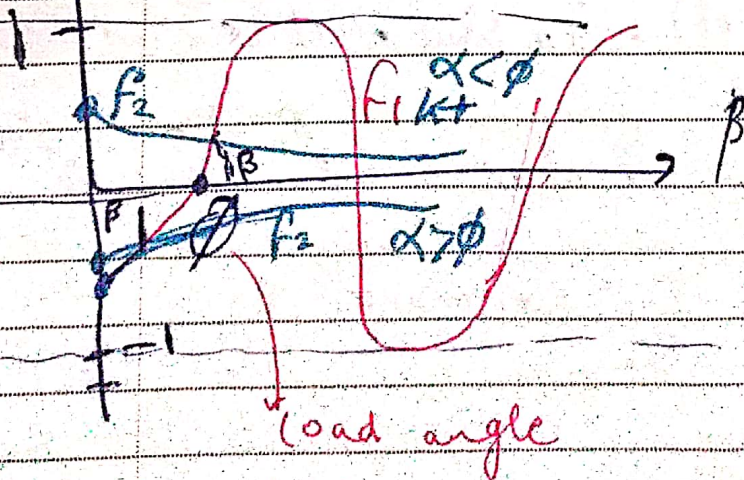 1
f₂
α<φ
f₁ k+
β
β
β
φ
f₂
α>φ
-1
load angle